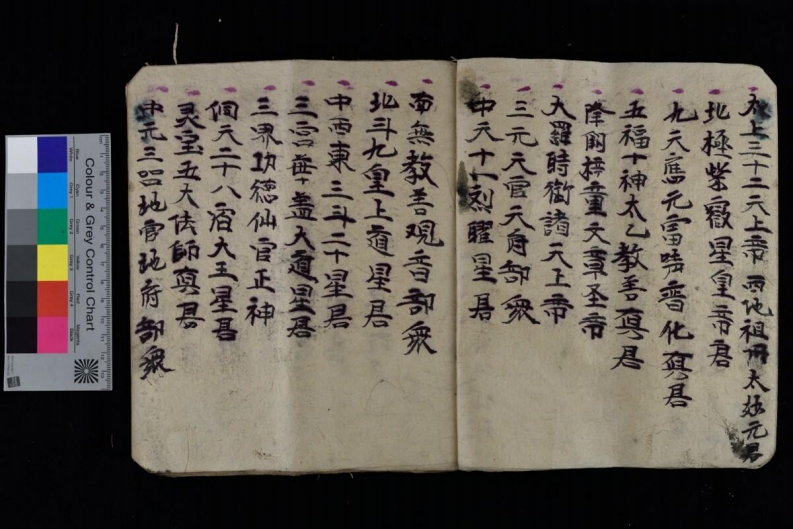 太上三十二天上帝 西地祖師太極元君
北極紫微星皇帝君
九天應元雷声普化真君
五福十神太乙教善真君
降筆梓童文章圣帝
大羅時御諸天上帝
三元天官天府部众
中天十一列曜星君
南無教善观音部众
北斗九皇上道星君
中西東三斗二十星君
三宮華盖大道星君
三界功德仙官正神
周天二十八宿大王星君
灵宝五大法師真君
中元三品地官地府部众
Colour & Grey Control Chart